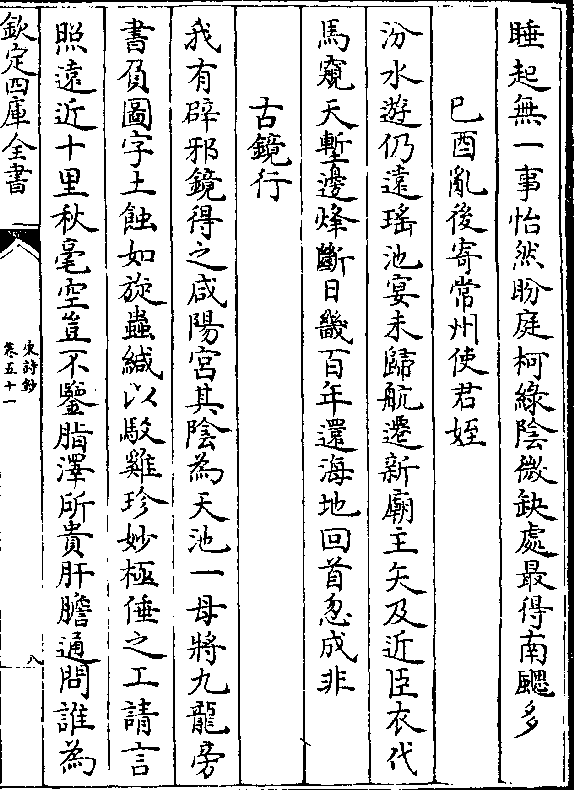 睡起無一事怡然盼庭柯綠陰微缺處最得南颸多
己酉亂後寄常州使君姪
汾水遊仍遠瑤池宴未歸航遷新廟主矢及近臣衣代
馬窺天塹邊烽斷日畿百年還海地回首忽成非
古鏡行
我有辟邪鏡得之咸陽宮其陰為天池一母將九龍旁
書負圖字土蝕如旋蟲緘以駭雞珍妙極倕之工請言
照遠近十里秋毫空豈不鑒脂澤所貴肝膽通問誰為
欽定四庫全書
宋詩鈔
卷五十一
八